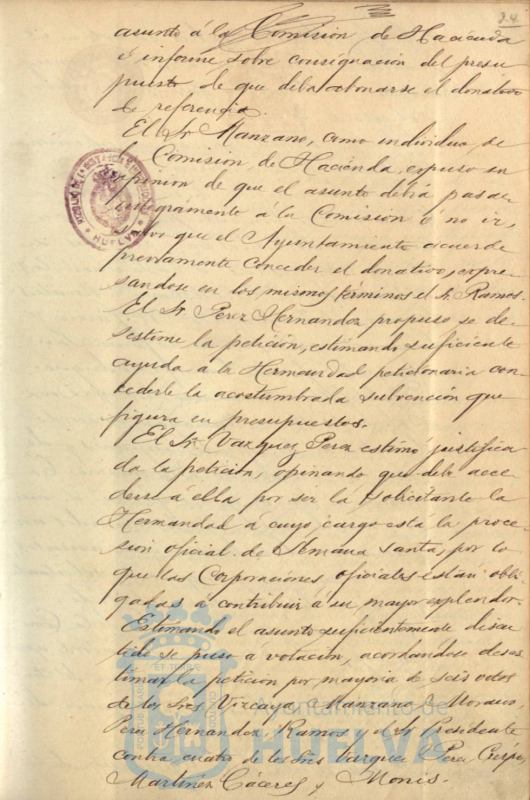 24
asunto á la Comision de Hacienda
é informe sobre consignacion del presu
puesto de que deba abonarse el donativo
de referencia.
El Sr Manzano, como individuo de
la Comision de Hacienda, expuso su
opinion de que el asunto debia pasar
integramente á la Comision ó no ir,
por que el Ayuntamiento acuerde
previamente conceder el donativo, expre
sandose en los mismos términos el Sr Ramos.
El Sr Perez Hernandez propuso se de-
sestime la peticion, estimando suficiente
ayuda a la Hermandad peticionaria con-
cederle la acostumbrada subvencion que
figura en presupuestos.
El Sr Vazquez Perez estimó justifica
da la peticion, opinando que debe acce
derse á ella por ser la solicitante la
Hermandad á cuyo cargo esta la proce-
sion oficial de Semana Santa, por lo
que las Corporaciones oficiales estan obli
gadas á contribuir á su mayor explendor.
Estimando el asunto suficientemente discu
tido se puso á votacion, acordandose deses
timar la peticion por mayoria de seis votos
de los Sres Vizcaya, Manzano, Morano,
Perez Hernandez, Ramos y el Sr Presidente
contra cuatro de los Sres Vazquez Perez, Crespo,
Martinez Cáceres y Monis.
HUELVA
Ayuntamiento de
HUELVA